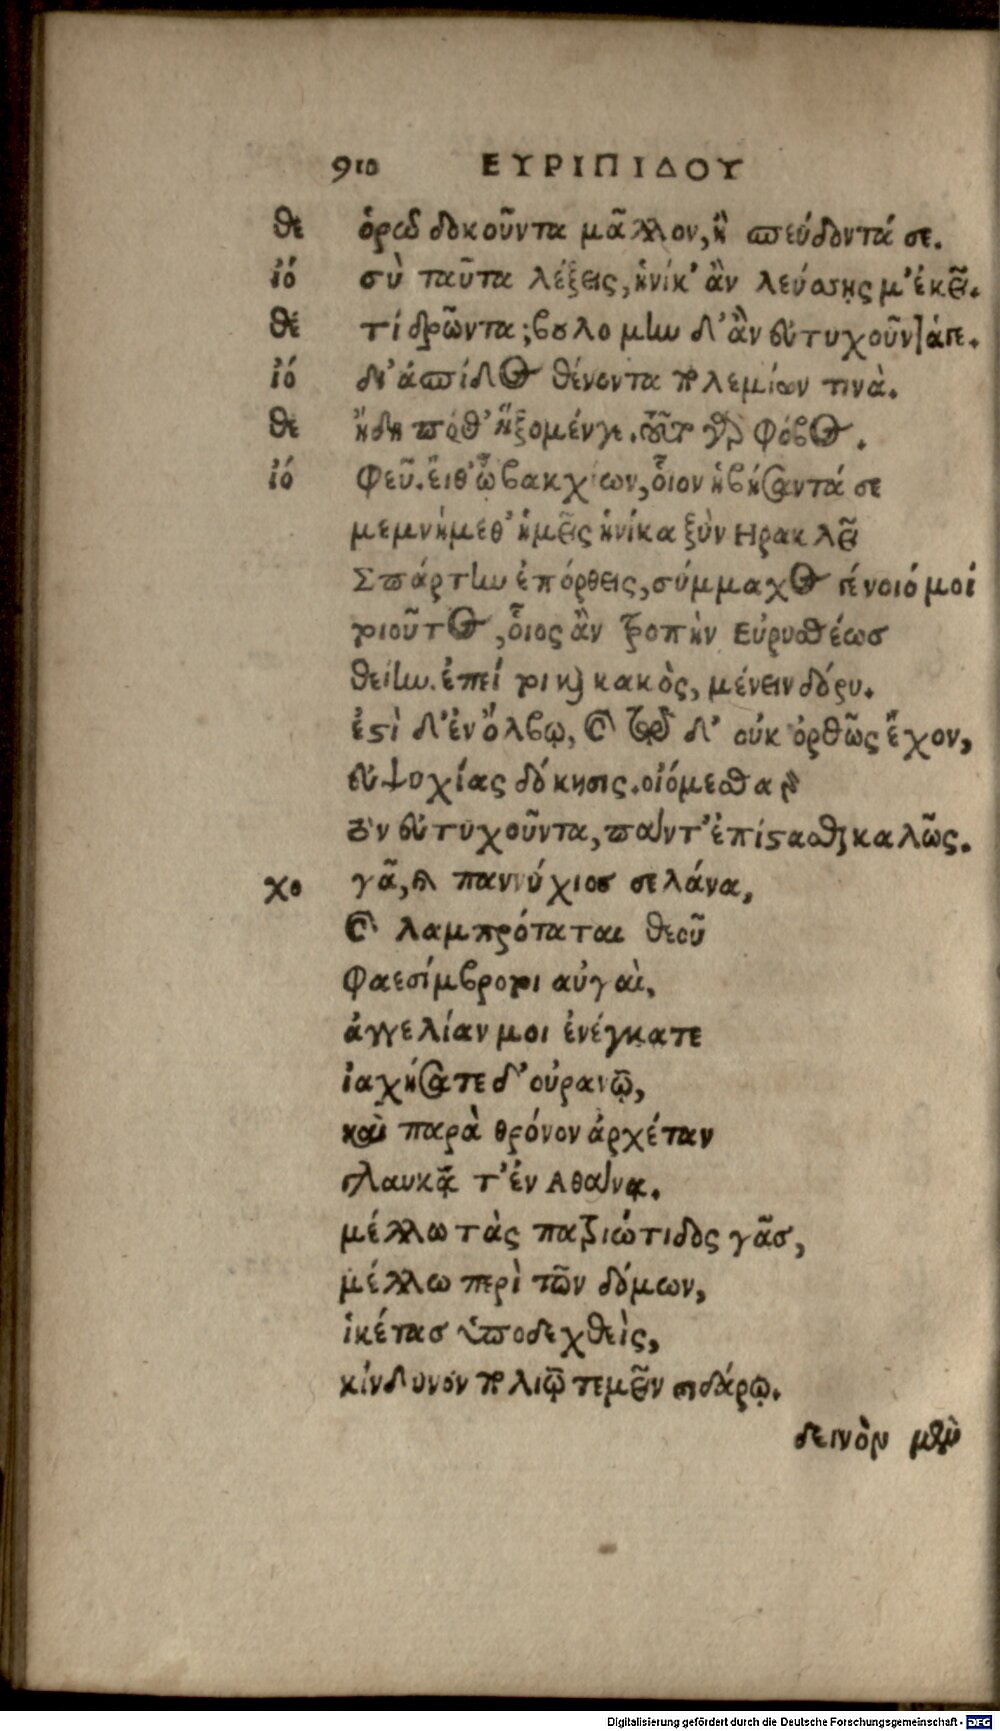 910 ΕΥΡΙΠΙΔΟΥ
θε ὁρῶ δοκοῦντα μᾶλλον, ἢ σπεύδοντά σε.
ἰό σὺ ταῦτα λέξεις, ἡνίκ' ἂν λεύσσῃς μ' ἐκεῖ.
θέ τί δρῶντα; βουλοίμην δ' ἂν εὐτυχοῦντά γε.
ἰό δι' ἀσπίδος θένοντα πολεμίων τινὰ.
θε ἤδη ποθ' ἥξομέν γε. τοῦτο γὰρ φόβος.
ἰό φεῦ. εἴθ' ὦ βακχίων, οἷον ἡβήσαντά σε
μεμνήμεθ' ἡμεῖς ἡνίκα ξὺν Ηρακλεῖ
Σπάρτην ἐπόρθεις, σύμμαχος γένοιό μοι
τοιοῦτος, οἷος ἂν τροπὴν Εὐρυσθέωσ
θείην. ἐπεί τοι καὶ κακὸς, μένειν δόρυ.
ἐστὶ δ' ἐν ὄλβῳ, καὶ τόδ' οὐκ ὀρθῶς ἔχον,
εὐψυχίας δόκησις. οἰόμεσθα γὰρ
τὸν εὐτυχοῦντα, πάντ' ἐπίστασθαι καλῶς.
χο γᾶ, καὶ παννύχιοσ σελάνα,
καὶ λαμπρόταται θεοῦ
φαεσίμβροτοι αὐγαὶ,
ἀγγελίαν μοι ἐνέγκατε
ἰαχήσατε δ' οὐρανῷ,
καὶ παρὰ θρόνον ἀρχέταν
γλαυκᾷ τ' ἐν Αθάνᾳ.
μέλλω τὰς πατριώτιδος γᾶσ,
μέλλω περὶ τῶν δόμων,
ἱκέτασ ὑποδεχθεὶς,
κίνδυνον πολιῷ τεμεῖν σιδάρῳ.
δεινὸν μὲν
Digitalisierung gefördert durch die Deutsche Forschungsgemeinschaft - DFG